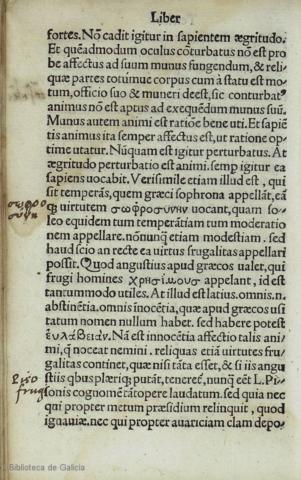 Liber
fortes. Nõ cadit igitur in sapientem ægritudo.
Et quẽadmodum oculus cõturbatus nõ est pro
be affectus ad suum munus fungendum, & reli-
quæ partes totumue corpus cum à statu est mo-
tum, officio suo & muneri deest, sic conturbat⁹
animus nõ est aptus ad exequẽdum munus suũ.
Munus autem animi est ratiõe bene uti. Et sapiẽ
tis animus ita semper affectus est, ut ratione op-
time utatur. Nũquam est igitur perturbatus. At
ægritudo perturbatio est animi. semp igitur ea
sapiens uocabit. Verisimile etiam illud est, qui
sit temperãs, quem græci sophrona appellãt, eã
q̃ uirtutem σωφροσύνην uocant, quam so-
leo equidem tum temperãtiam tum moderatio
nem appellare. nõnunq̃ etiam modestiam. sed
haud scio an recte ea uirtus frugalitas appellari
possit. Quod angustius apud græcos ualet, qui
frugi homines χρησίμουσ appelant, id est
tantummodo utiles. At illud est latius. omnis. n.
abstinẽtia. omnis inocẽtia, quæ apud græcos usi
tatum nomen nullum habet. sed habere potest
ἐυλάβειὰν. Nã est innocẽtia affectio talis ani-
mi, q̃ noceat nemini. reliquas etiã uirtutes fru-
galitas continet, quæ nisi tãta esset, & si iis angu
stiis qbus plæriq; putãt, teneret̃, nunq̃ eẽt L. Pi-
sonis cognomẽ tãtopere laudatum. sed quia nec
qui propter metum præsidium relinquit, quod
ignauiæ. nec qui propter auariciam clam depo-
σωφρο
σύνη
Piso
frugi
Biblioteca de Galicia